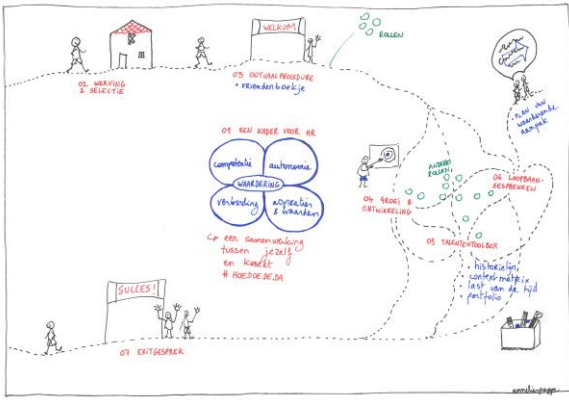 WELKOM
ROLLEN
02 WERVING
& SELECTIE
03 ONTHAALPROCEDURE
• vriendenboekje
• PLAN VAN
waarderende
aanpak
01 EEN KADER VOOR HR
competentie
autonomie
WAARDERING
verbinding
aspiraties
& waarden
een samenwerking
tussen jezelf
en
# HOEDOEDEDA
ANDERE
ROLLEN
04 GROEI &
ONTWIKKELING
06 LOOPBAAN-
GESPREKKEN
05 TALENTENTOOLBOX
• historielijn,
contextmatrix
• last van de tijd
• portfolio
SUCCES!
07 EXITGESPREK